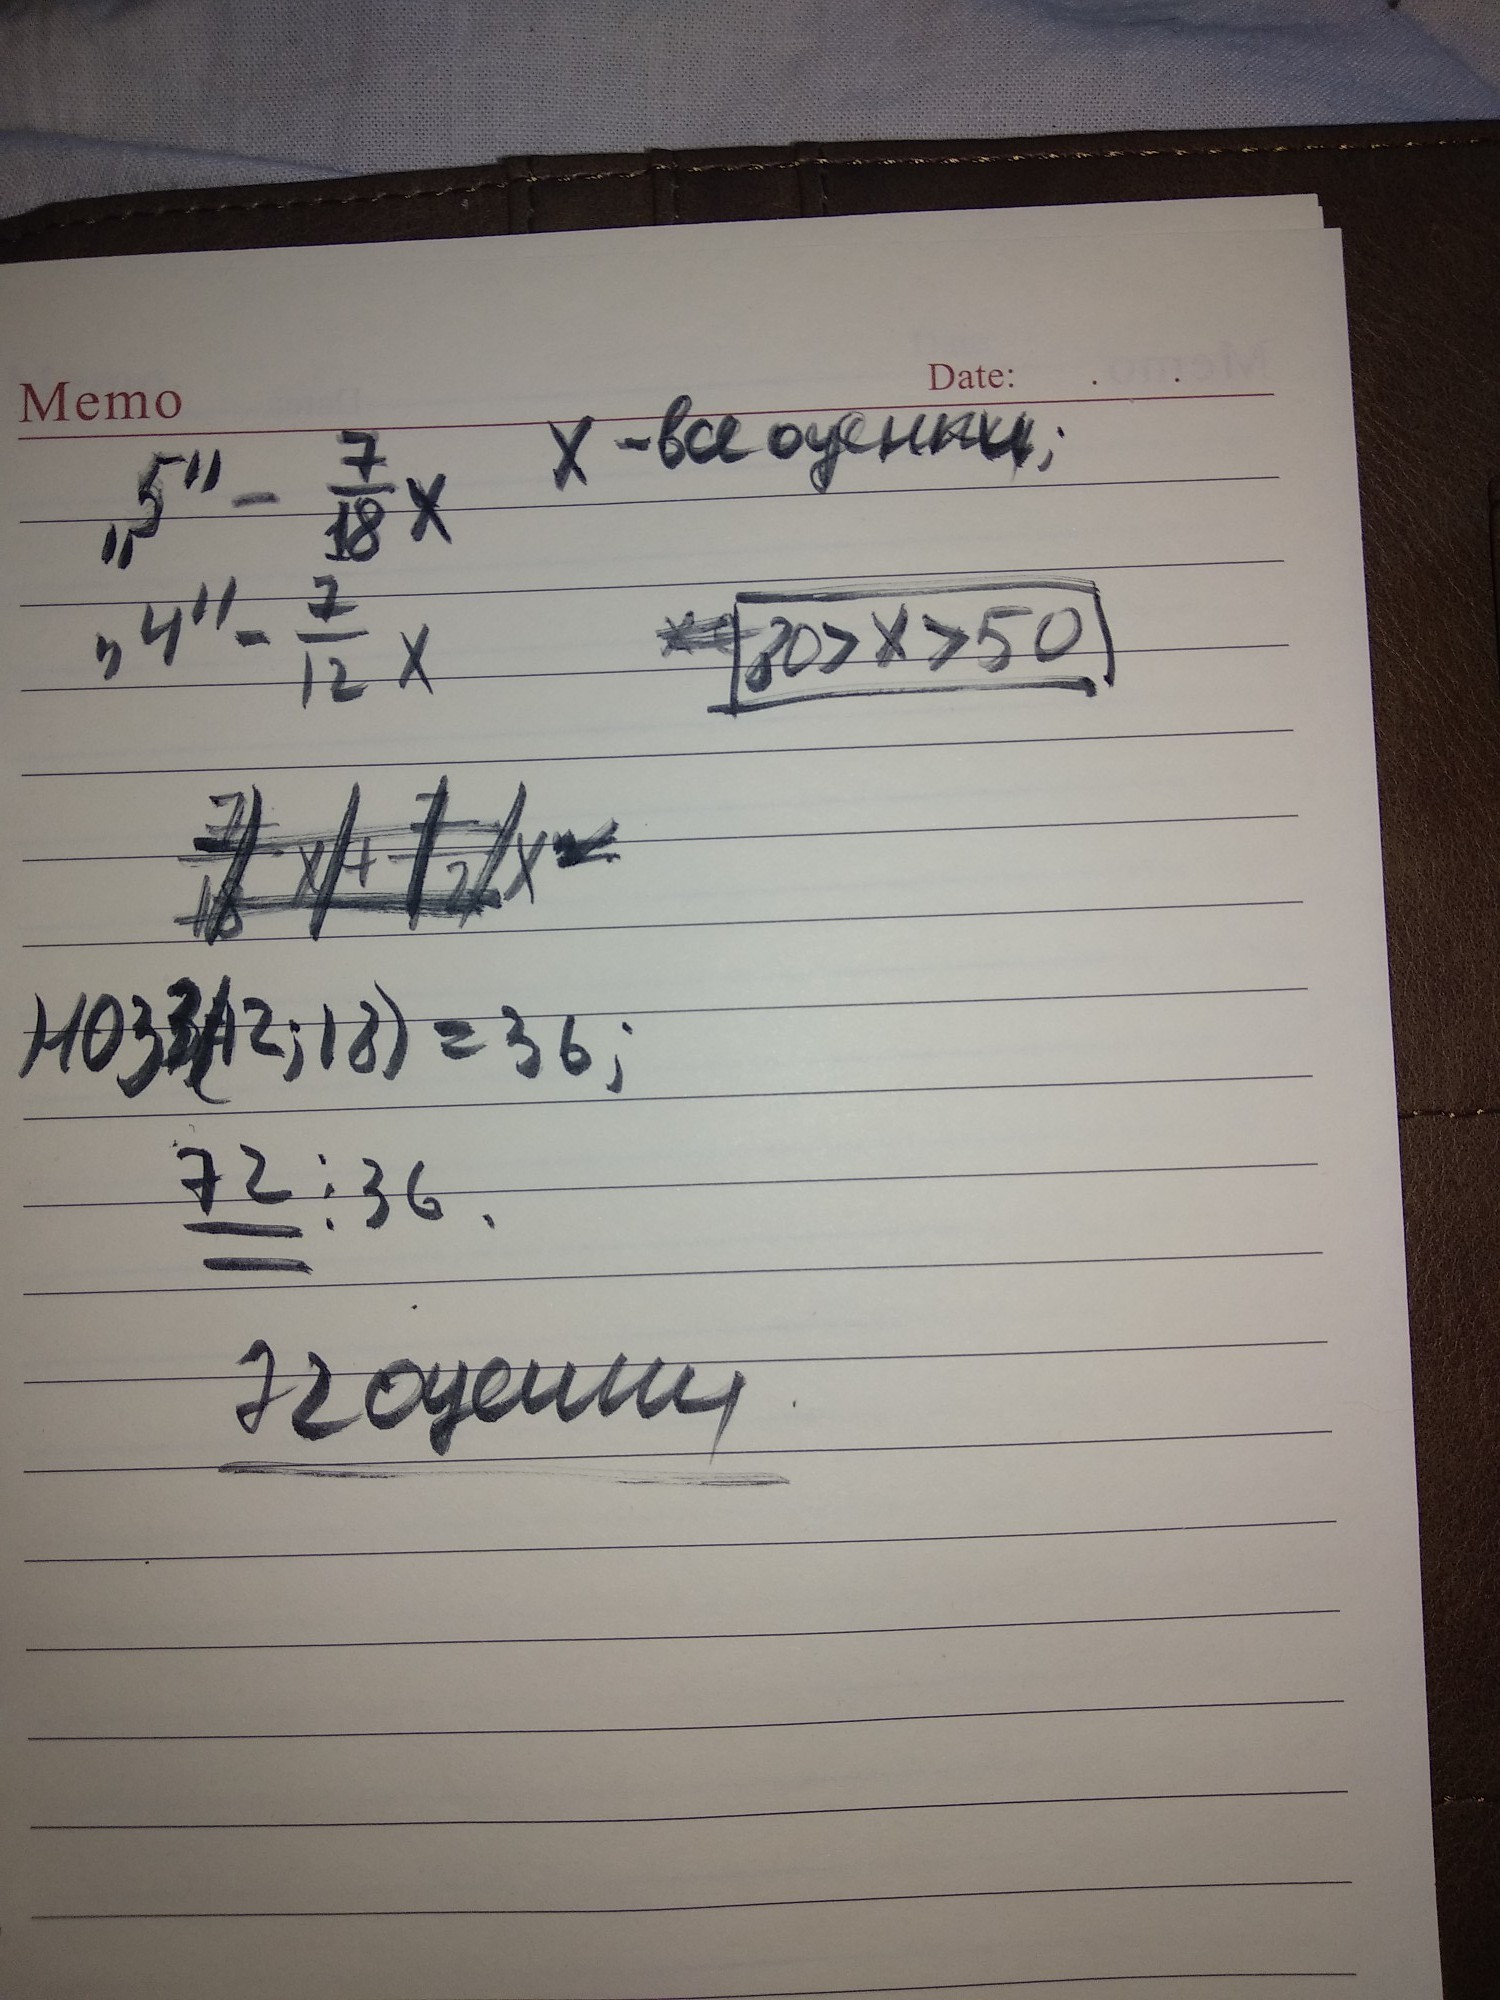 Memo Date: . .
„5" - 7/18 x x - все оценки;
„4" - 7/12 x 80>x>50
7/18 x + 7/12 x
НОЗ(12;18) = 36;
72 : 36.
72 оценки.